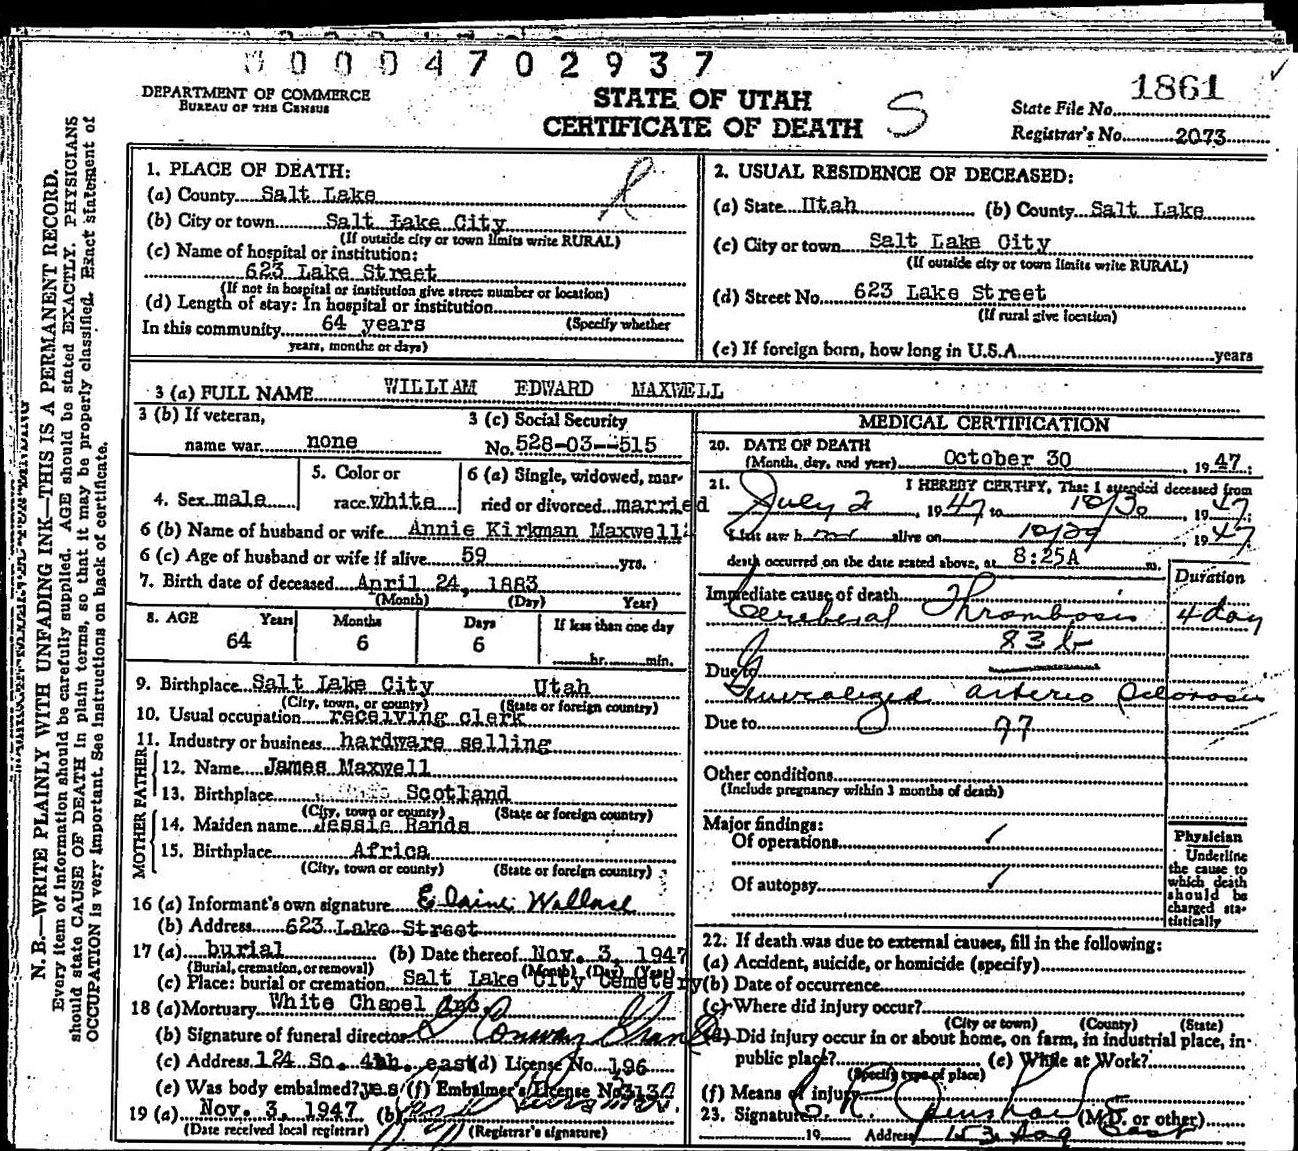 00004702937
DEPARTMENT OF COMMERCE
BUREAU OF THE CENSUS
STATE OF UTAH
CERTIFICATE OF DEATH
S
State File No. 1861
Registrar's No. 2073
N. B.—WRITE PLAINLY WITH UNFADING INK—THIS IS A PERMANENT RECORD.
Every item of information should be carefully supplied. AGE should be stated EXACTLY. PHYSICIANS
should state CAUSE OF DEATH in plain terms, so that it may be properly classified. Exact statement of
OCCUPATION is very important. See instructions on back of certificate.
1. PLACE OF DEATH:
(a) County Salt Lake
(b) City or town Salt Lake City
(If outside city or town limits write RURAL)
(c) Name of hospital or institution:
623 Lake Street
(If not in hospital or institution give street number or location)
(d) Length of stay: In hospital or institution
In this community 64 years (Specify whether
years, months or days)
2. USUAL RESIDENCE OF DECEASED:
(a) State Utah (b) County Salt Lake
(c) City or town Salt Lake City
(If outside city or town limits write RURAL)
(d) Street No. 623 Lake Street
(If rural give location)
(e) If foreign born, how long in U.S.A. years
3 (a) FULL NAME WILLIAM EDWARD MAXWELL
3 (b) If veteran,
name war none
3 (c) Social Security
No. 528-03--515
4. Sex male
5. Color or
race white
6 (a) Single, widowed, mar-
ried or divorced married
6 (b) Name of husband or wife Annie Kirkman Maxwell
6 (c) Age of husband or wife if alive 59 yrs.
7. Birth date of deceased April 24, 1883
(Month) (Day) Year)
8. AGE Years Months Days If less than one day
64 6 6 hr. min.
9. Birthplace Salt Lake City Utah
(City, town, or county) (State or foreign country)
10. Usual occupation receiving clerk
11. Industry or business hardware selling
FATHER
12. Name James Maxwell
13. Birthplace Scotland
(City, town or county) (State or foreign country)
MOTHER
14. Maiden name Jessie Rands
15. Birthplace Africa
(City, town or county) (State or foreign country)
16 (a) Informant's own signature Elaine Wallace
(b) Address 623 Lake Street
17 (a) burial (b) Date thereof Nov. 3, 1947
(Burial, cremation, or removal) (Month) (Day) (Year)
(c) Place: burial or cremation Salt Lake City Cemetery
18 (a) Mortuary White Chapel Inc.
(b) Signature of funeral director
(c) Address 124 So. 4th. east (d) License No. 196
(e) Was body embalmed? yes (f) Embalmer's License No. 313
19 (a) Nov. 3, 1947 (b)
(Date received local registrar) (Registrar's signature)
MEDICAL CERTIFICATION
20. DATE OF DEATH
(Month, day, and year) October 30, 1947;
21. I HEREBY CERTIFY, That I attended deceased from
July 2, 1947 to 10/30, 1947;
I last saw h im alive on 10/29, 1947
death occurred on the date stated above, at 8:25A m.
Duration
Immediate cause of death
Cerebral Thrombosis 4 day
83 b
Due to
Generalized arterio sclerosis
Due to 97
Other conditions
(Include pregnancy within 3 months of death)
Major findings:
Of operations
Of autopsy
Physician
Underline
the cause to
which death
should be
charged sta-
tistically
22. If death was due to external causes, fill in the following:
(a) Accident, suicide, or homicide (specify)
(b) Date of occurrence
(c) Where did injury occur?
(City or town) (County) (State)
(d) Did injury occur in or about home, on farm, in industrial place, in
public place? (e) While at Work?
(Specify type of place)
(f) Means of injury
23. Signature (M.D. or other)
19 Address East